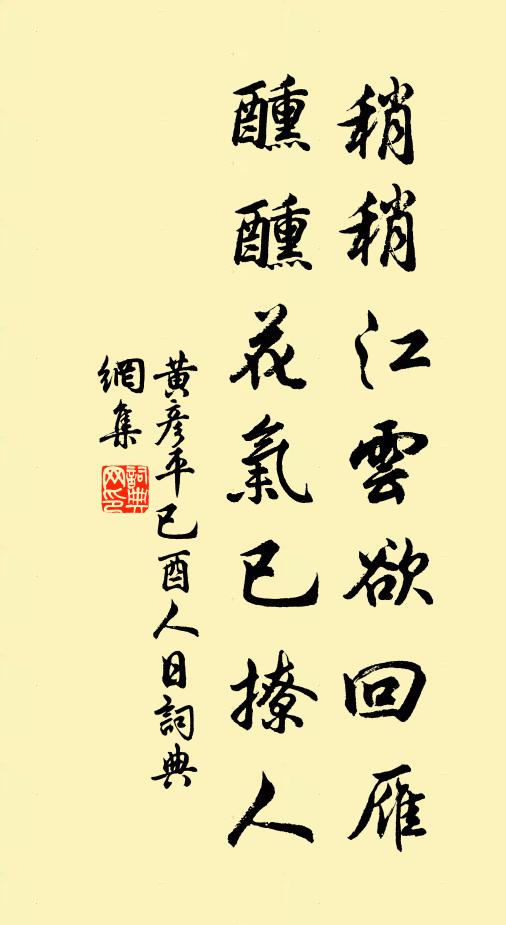 稍稍江雲欲回雁
醺醺花氣已撩人
黃彦平己酉人日詞典
網集
詞典
网印